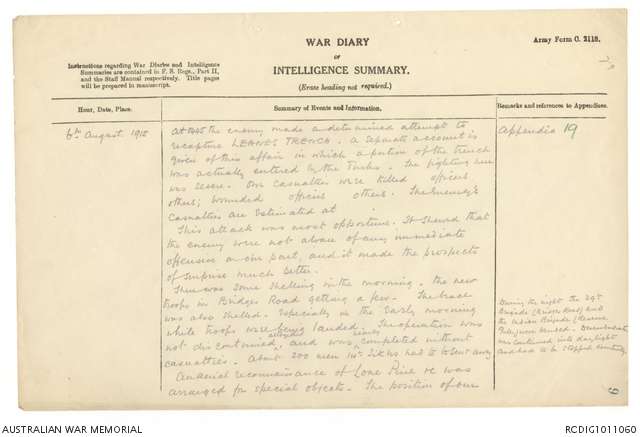 WAR DIARY
or
INTELLIGENCE SUMMARY.
(Erase heading not required.)
Army Form C. 2118.
Instructions regarding War Diaries and Intelligence
Summaries are contained in F. S. Regs., Part II,
and the Staff Manual respectively. Title pages
will be prepared in manuscript.
Hour, Date, Place.
Summary of Events and Information.
Remarks and references to Appendices.
6th August 1915
At 0445 the enemy made a determined attempt to
recapture LEANE'S TRENCH. A separate account is
given of this affair in which a portion of the trench
was actually entered by the Turks. The fighting here
was severe. Our casualties were killed officers
others; wounded officers others. The Enemy's
casualties are estimated at
This attack was most opportune. It showed that
the enemy were not aware of any immediate
offensive on our part, and it made the prospects
of surprise much better.
There was some shelling in the morning, the new
troops in Bridges Road getting a few. The beach
was also shelled. Especially in the early morning
while troops were being landed. The operation was
not discontinued, and was completed without
casualties. About 200 men 14th Sikhs had to be sent away
An aerial reconnaissance of Lone Pine &c was
arranged for special objects. The position of our
Appendix 19
During the night the 29th
Brigade and
the Indian Brigade
landed. Disembarkation
was continued into daylight
and had to be stopped
6
AUSTRALIAN WAR MEMORIAL
RCDIG1011060